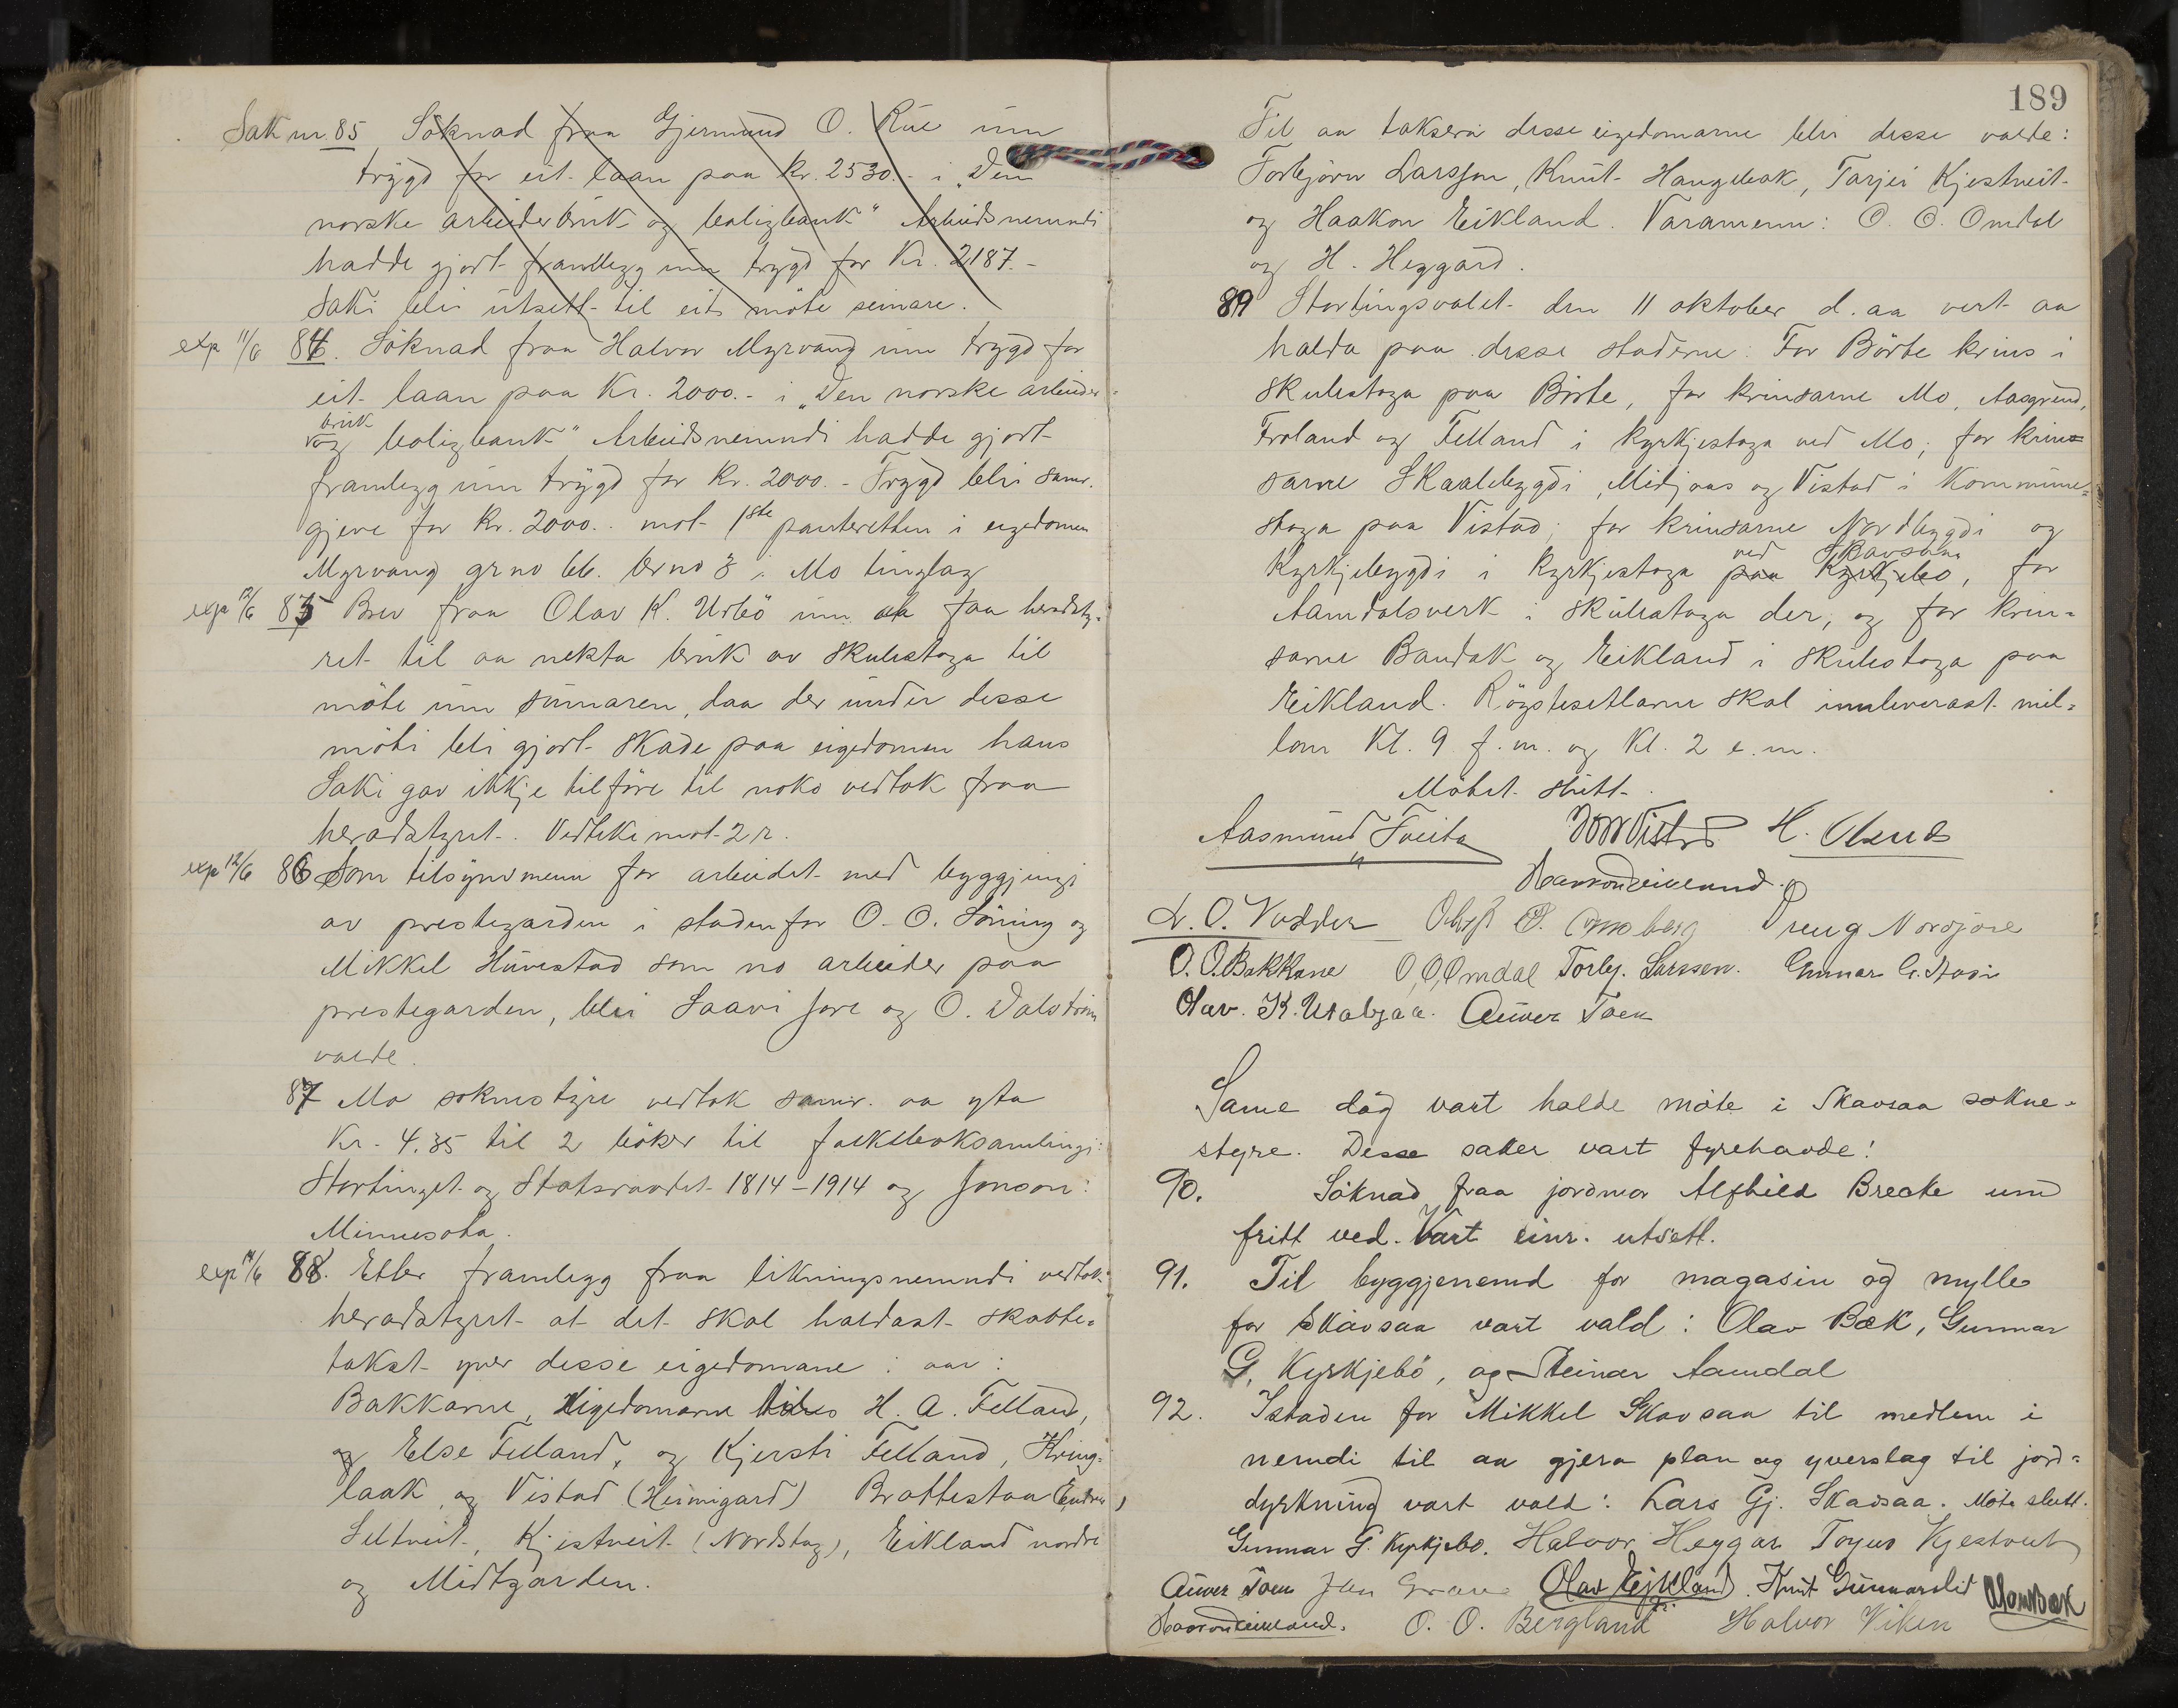 Sak nr. 85 Söknad fraa Gjermund O. Rue um
trygd for eit laan paa kr. 2530.- i "Den
norske arbeiderbruk og boligbank" Arbeidsnemndi
hadde gjort framlegg um trygd for Kr. 2187.-
Saki blei utsett til eit möte seinare.
exp 11/6 84. Söknad fraa Halvor Myrvang um trygd for
eit laan paa Kr. 2000.- i "Den norske arbeider-
bruk
og boligbank" Arbeidsnemndi hadde gjort
framlegg um trygd for Kr. 2000.- Trygd blei samr.
gjeve for Kr. 2000.- mot 1ste panteretten i eigedomen
Myrvang grno 66. brno 8 i Mo tinglag
exp 12/6 85 Brev fraa Olav K. Urbö um aa faa heradsty-
ret til aa nekta bruk av skulestoga til
möte um sumaren, daa der under desse
möti blei gjort skade paa eigedomen hans
Saki gav ikkje tilföre til noko vedtak fraa
heradstyret. Vedteke mot 2 r.
exp 12/6 86 Som tilsynsmenn for arbeidet med byggjingi
av prestegarden i staden for O. O. Söning og
Mikkel Huvestad som no arbeider paa
prestegarden, blei Saavi Jore og O. Dalström
valde.
87 Mo soknestyre vedtok samr. aa yta
Kr. 4.35 til 2 böker til folkeboksamlingi:
Stortinget og Statsraadet 1814-1914 og Jonson:
Minnesota.
exp 14/6 88. Etter framlegg fraa likningsnemndi vedtok
heradstyret at det skal haldast skatte-
takst yver desse eigedomane i aar:
Bakkarne, Eigedomarne til H. A. Felland,
og Else Felland, og Kjersti Felland, Kring-
laak, og Vistad (Heimigard) Brattestaa (Endre)
Seltveit, Kjestveit (Nordstog), Eikland nordre
og Midtgarden.
189
Til aa taksera desse eigedomarne blei desse valde:
Torbjörn Larsson, Knut Haugebak, Tarjei Kjestveit
og Haakon Eikland. Varamenn: O. O. Omdal
og H. Heggard.
89 Stortingsvalet den 11 oktober d. aa vert aa
halda paa desse staderne: For Börte krins i
skulestoga paa Börte, for krinsarne Mo, Aasgrend,
Froland og Felland i kyrkjestoga ved Mo; for krin=
sarne Skaalebygdi, Midjaas og Vistad i Kommune=
stoga paa Vistad; for krinsarne Nordbygdi og
ved Skavsaa
Kyrkjebygdi i Kyrkjestoga paa Kyrkjebo, for
Aamdalsverk i skulestoga der, og for krin=
sarne Bandak og Eikland i skulestoga paa
Eikland. Röystesetlarne skal innleverast mil=
lom Kl. 9 f.m. og Kl. 2 e.m.
Mötet slutt.
Aasmund Tveito H. Olsnes
Haakon Eikland.
L. O. Vadder Dreng Nordjore
O. O. Bakkane O. O. Omdal Torbj. Larssen. Gunnar G.
Olav. K. Urabjaa. Eiver Toen
Same dag vart halde möte i Skavsaa sokne-
styre. Desse saker vart fyrehavde!
90. Söknad fraa jordmor Alfhild Brecke um
fritt ved. Vart einr. utsett.
91. Til byggjenemd for magasin og mylle
for Skavsaa vart vald: Olav Bæk, Gunnar
G. Kyrkjebö, og Steinar Aamdal
92. Istaden for Mikkel Skavsaa til medlem i
nemdi til aa gjera plan og yverslag til jord=
dyrkning vart vald: Lars Gj. Skavsaa. Möte slutt.
Gunnar G. Kyrkjebo. Halvor Heggar Tarjus Kjestveit
Eiver Toen Olav Eikland. Knut Gunnarslid Olav Bæk
Haakon Eikland. O. O. Bergland Halvor Viken